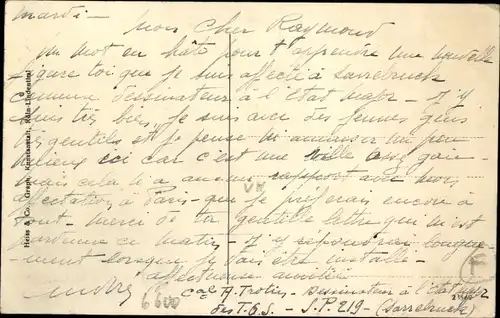 Mardi –
Mon cher Raymond
Un mot en hâte pour t'apprendre une nouvelle
figure toi que je suis affecté à Sarrebruck
comme dessinateur à l'état major – J'y
suis très bien, je suis avec des jeunes gens
gentils et je pense m'amuser un peu
mieux ici car c'est une ville assez gaie –
mais cela n'a aucun rapport avec mon
affectation à Paris – que je préférais encore à
tout – merci de ta gentille lettre qui m'est
parvenue ce matin – J'y répondrai longue-
ment lorsque je vais être installé –
affectueuse amitié
André
Cal A. Trotin – dessinateur à l'état major
des T.O.S – S.P. 219 – (Sarrebruck)
6600
VK
F
Heiss & Co., Graph. Kunstanstalt, Köln-Lindenthal